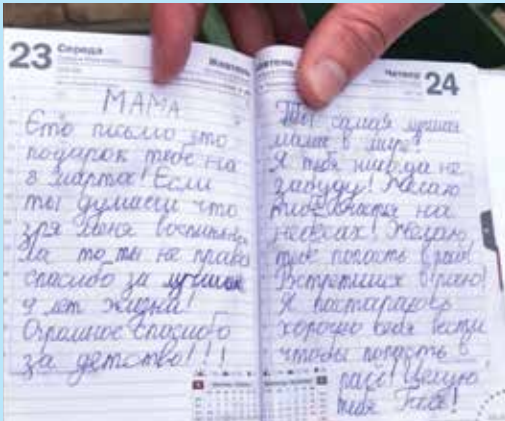 23 Середа
Жовтень
МАМА
Єто письмо это
подарок тебе на
8 марта! Если
ты думаеш что
зря меня воспитала
За то ты не права
спасибо за лучших
9 лет жизни!
Огромное спасибо
за детство!!!
Четвер 24
Ты самая лучшая
мама в мире!
Я тебя никогда не
забуду! Желаю
тибе на
небесах! Желаю
тибе попасть в рай!
Встретимся в раю!
Я постараюсь
хорошо себя вести
чтобы попасть в
Целую
тебя